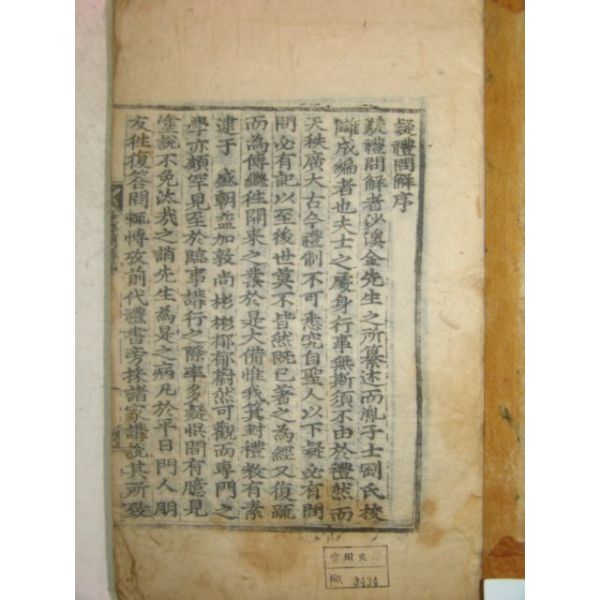 疑禮問解序
疑禮問解者沙溪金先生之所纂述而胤子士剛氏挍
讎成編者也夫士之處身行事無斯須不由於禮然而
天秩廣大古今禮制不可悉究自聖人以下疑必有問
問必有記以至後世莫不皆然既已著之為經又復疏
而為傳繼往開來之業於是大備惟我箕封禮教有素
逮于 盛朝益加敦尚彬彬郁郁蔚然可觀而專門之
學亦頗罕見至於臨事講行之際率多疑惧間有臆見
塗說不免汰哉之誚先生為是之病凡於平日門人朋
友往復答問輒博攷前代禮書旁採諸家講說其所致
No. 3434